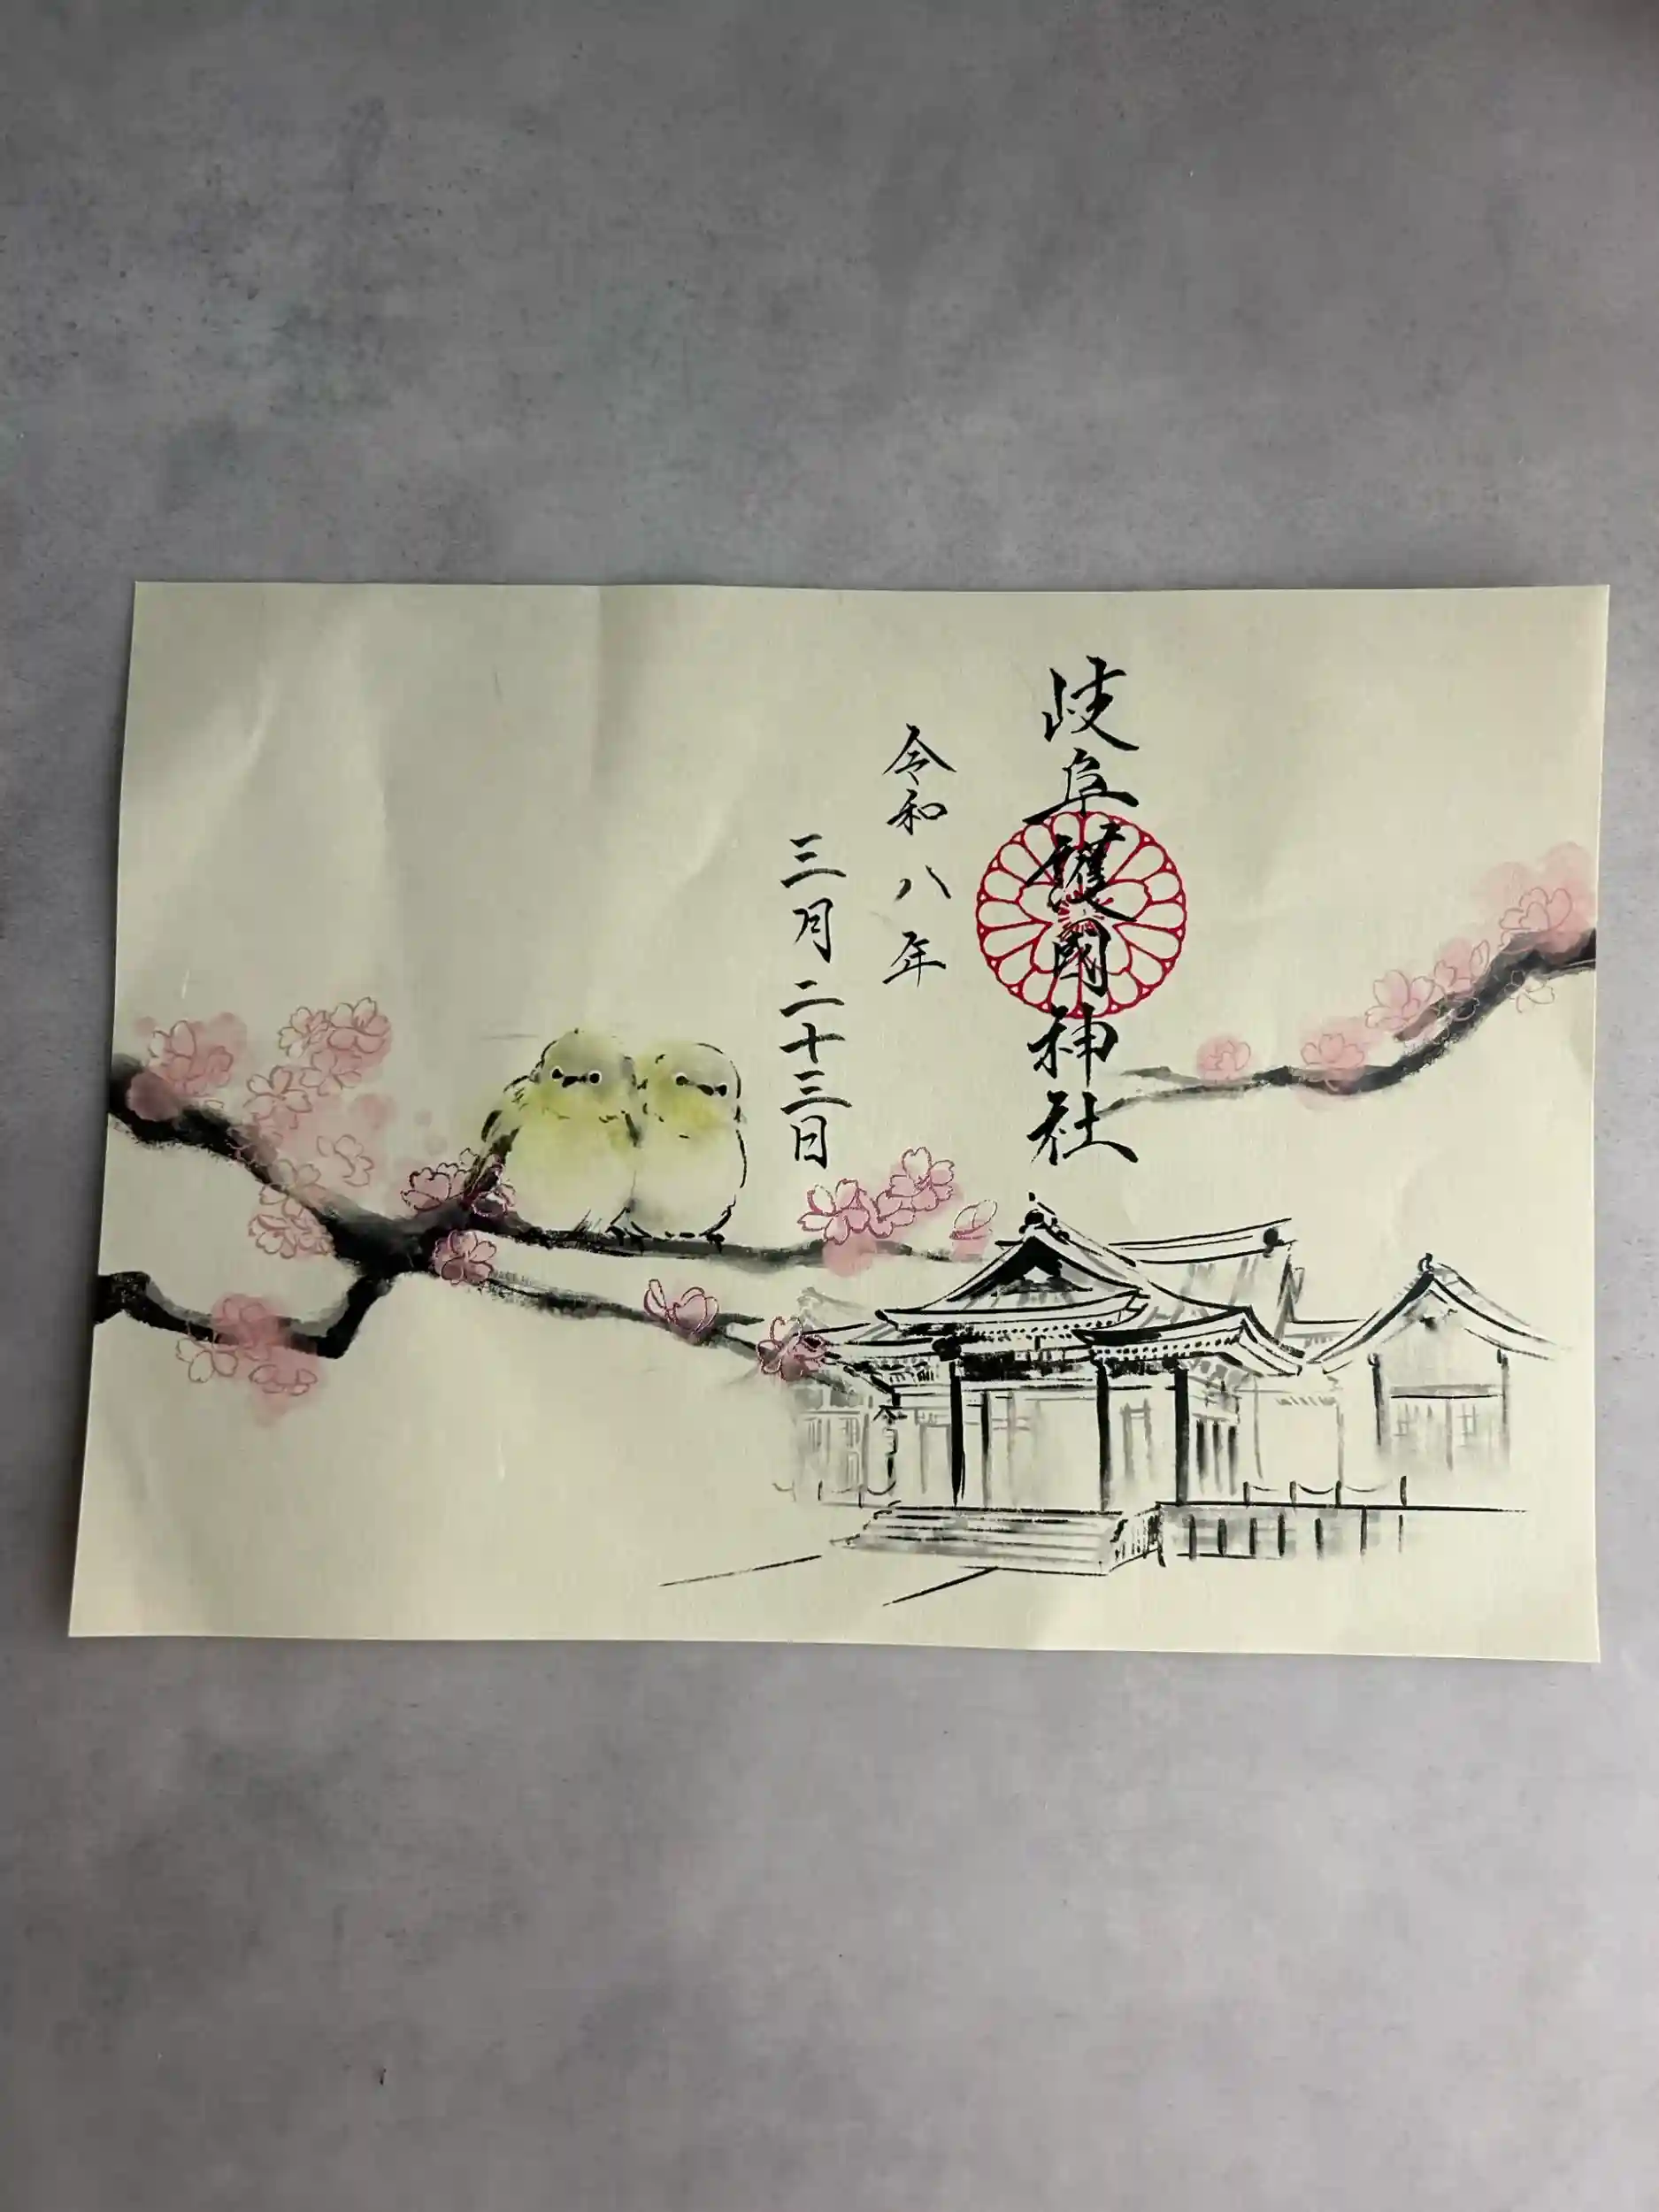 岐阜護國神社
令和八年
三月二十三日